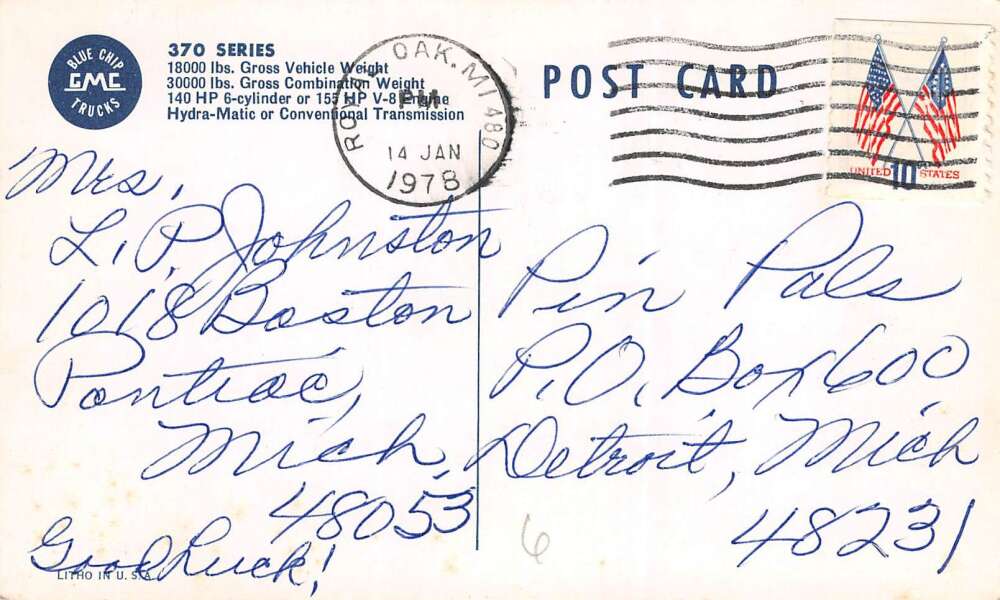 BLUE CHIP
GMC
TRUCKS
370 SERIES
18000 lbs. Gross Vehicle Weight
30000 lbs. Gross Combination Weight
140 HP 6-cylinder or 155 HP V-8 Engine
Hydra-Matic or Conventional Transmission
ROYAL OAK, MI 480
PM
14 JAN
1978
POST CARD
UNITED 10c STATES
Mrs,
L. P. Johnston
1018 Boston
Pontiac,
Mich,
48053
Good Luck!
LITHO IN U. S. A.
Pin Pals
P.O. Box 600
Detroit, Mich
48231
6